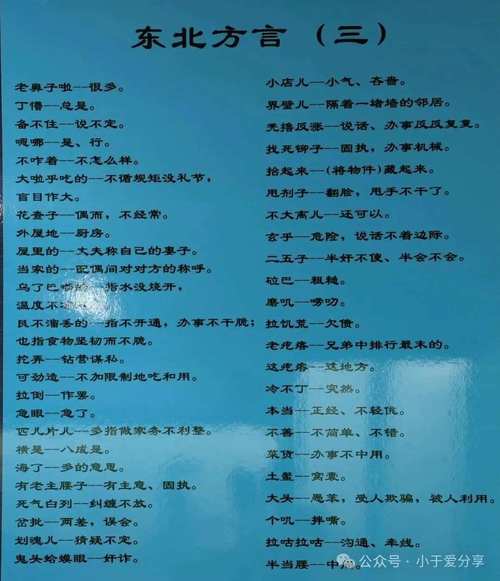 东北方言（三）
老鼻子啦--很多。
丁僧--总是。
备不住--说不定。
嗯哪--是、行。
不咋着--不怎么样。
大啦乎吃的--不循规矩没礼节，
盲目作大。
花查子--偶而，不经常。
外屋地--厨房。
屋里的--丈夫称自己的妻子。
当家的--配偶间对对方的称呼。
乌了巴嘟的--指水没烧开，
温度不
艮不溜丢的--指不开通，办事不干脆；
也指食物坚韧而不脆。
挖弄--钻营谋私。
可劲造--不加限制地吃和用。
拉倒--作罢。
急眼--急了。
西儿片儿--多指做家务不利整。
横是--八成是。
海了--多的意思。
有老主腰子--有主意、固执。
死气白列--纠缠不放。
岔批--两差，误会。
划魂儿--猜疑不定。
鬼头蛤蟆眼--奸诈。
小店儿--小气、吝啬。
界壁儿--隔着一堵墙的邻居。
无撸反涨--说话、办事反反复复。
找死铆子--固执，办事机械。
抬起来--(将物件)藏起来。
甩剂子--翻脸，甩手不干了。
不大离儿--还可以。
玄乎--危险，说话不着边际。
二五子--半奸不傻、半会不会。
砬巴--粗糙。
磨叽--唠叨。
拉饥荒--欠债。
老疙瘩--兄弟中排行最末的。
这疙瘩--这地方。
冷不丁--突然。
本当--正经、不轻佻。
不善--不简单、不错。
菜货--办事不中用。
土鳖--窝囊。
大头--愚笨，受人欺骗，被人利用。
个叽--拌嘴。
拉咕拉咕--沟通、牵线。
半当腰--中
公众号·小于爱分享